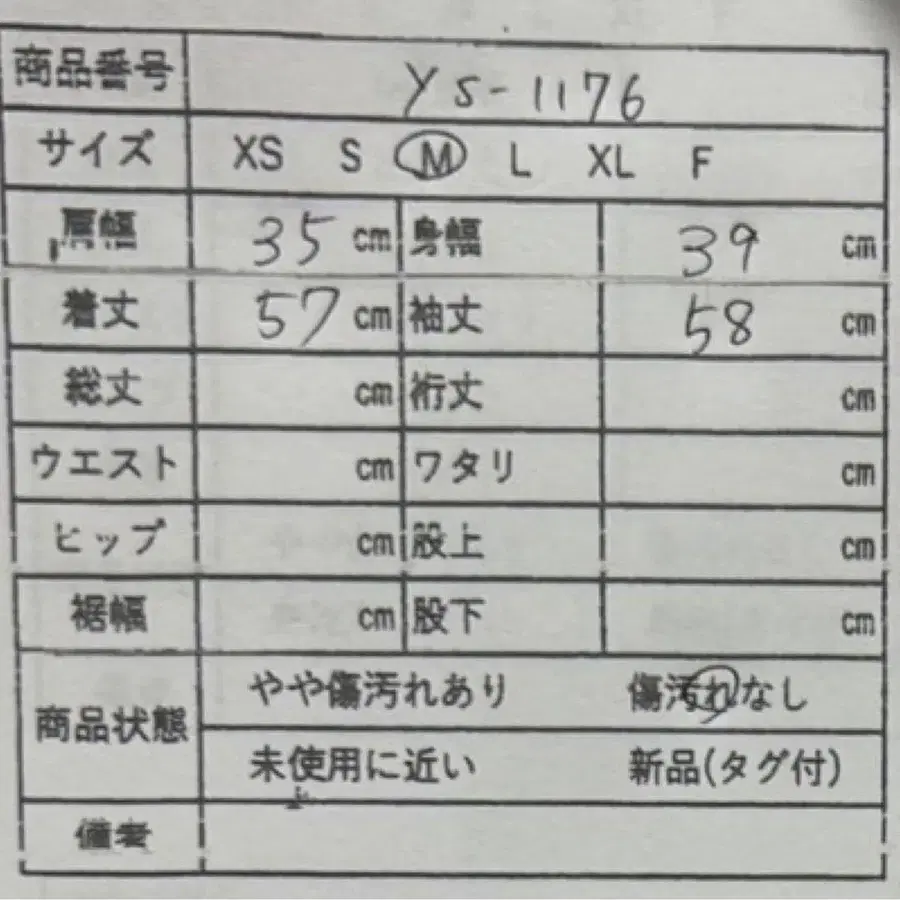 商品番号 YS-1176
サイズ XS S M L XL F
肩幅 35 cm 身幅 39 cm
着丈 57 cm 袖丈 58 cm
総丈 cm 裄丈 cm
ウエスト cm ワタリ cm
ヒップ cm 股上 cm
裾幅 cm 股下 cm
商品状態 やや傷汚れあり 傷汚れなし
未使用に近い 新品(タグ付)
備考